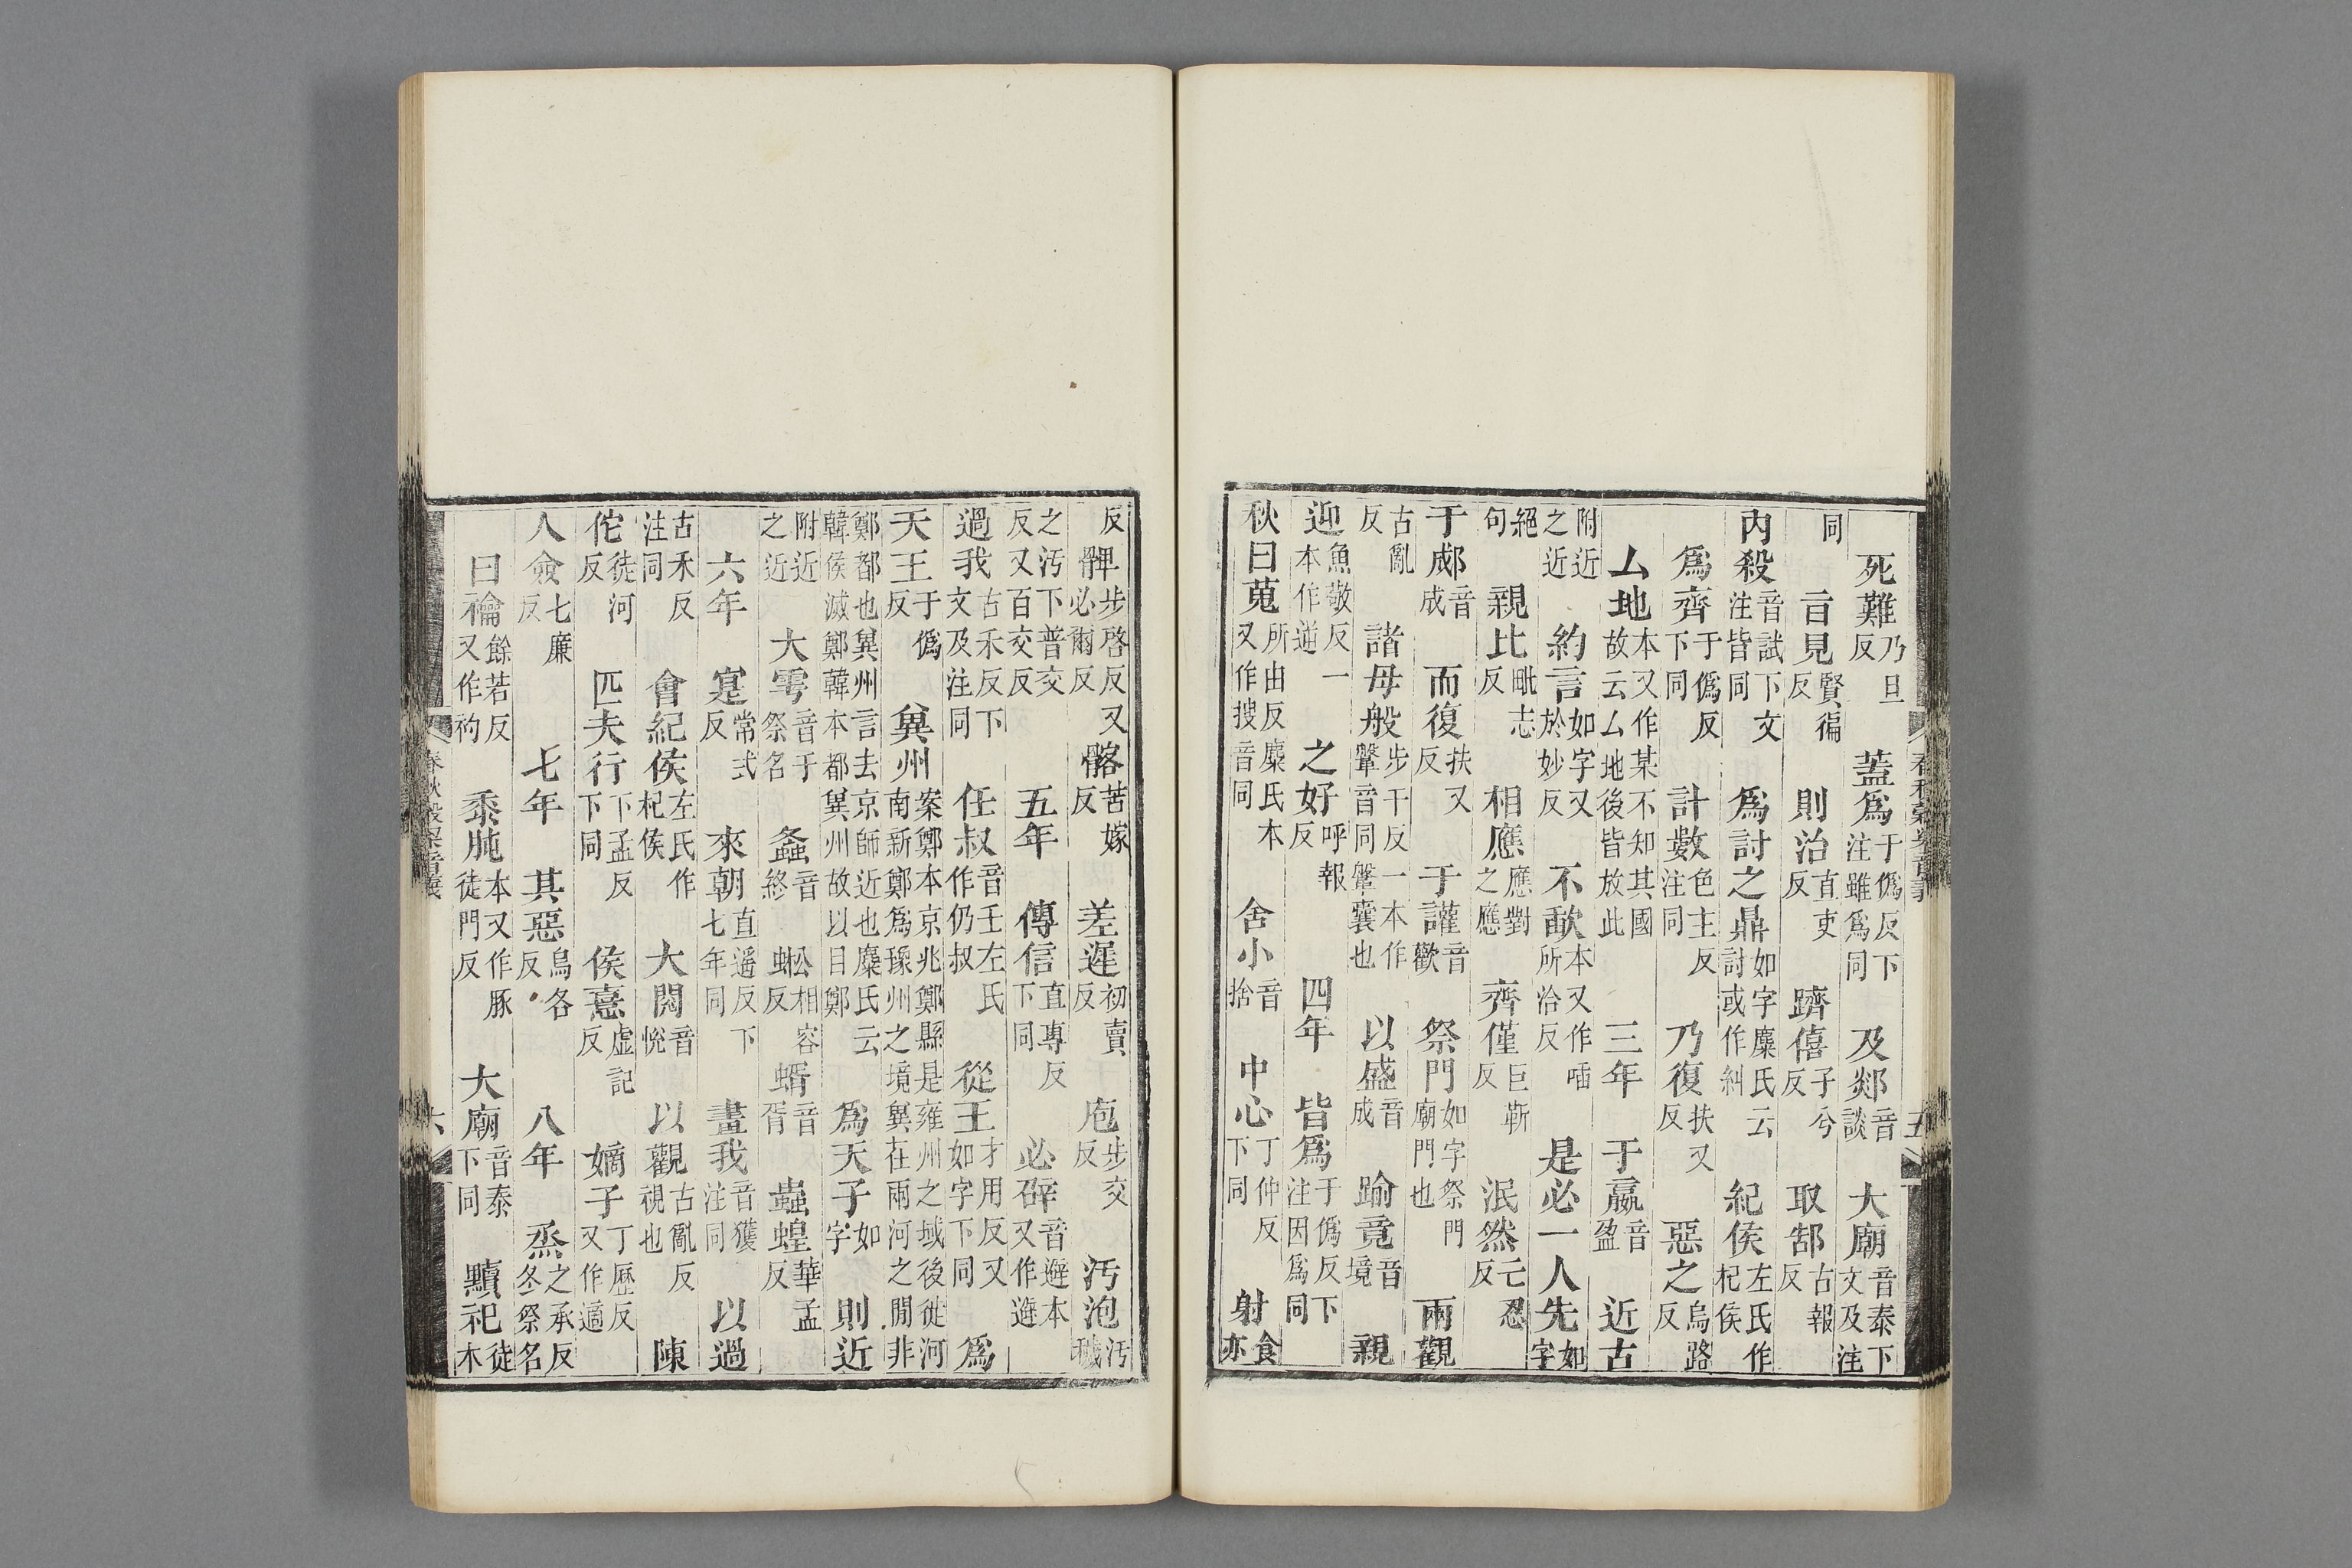 春秋穀梁音義 五
死難乃旦反 蓋爲于僞反下注雖爲同 及郯音談 大廟音泰下文及注
同 言見賢徧反 則治直吏反 躋僖子兮反 取郜古報反
内殺音試下文注皆同 爲討之鼎如字麋氏云討或作糾 紀侯左氏作杞侯
爲齊于僞反下同 計數色主反注同 乃復扶又反 惡之烏路反
厶地本又作某不知其國故云厶地後皆放此 三年 于嬴音盈 近古
附近之近 約言如字又於妙反 不歃本又作喢所洽反 是必一人先如字
絕句 親比毗志反 相應應對之應 齊僅巨靳反 泯然亡忍反
于郕音成 而復扶又反 于讙音歡 祭門如字祭門廟門也 兩觀
古亂反 諸母般步干反一本作鞶音同鞶囊也 以盛音成 踰竟音境 親
迎魚敬反一本作逆 之好呼報反 四年 皆爲于僞反下注因爲同
秋曰蒐所由反麋氏本又作搜音同 舍小音捨 中心丁仲反下同 射食亦
反 髀步啓反又必爾反 髂苦嫁反 差遲初賣反 庖步交反 汚泡汚穢
之汚下普交反又百交反 五年 傳信直專反下同 必辟音避本又作避
過我古禾反下文及注同 任叔音壬左氏作仍叔 從王才用反又如字下同 爲
天王于僞反 兾州案鄭本京兆鄭縣是雍州之域後徙河南新鄭爲豫州之境兾在兩河之閒非
鄭都也兾州言去京師近也麋氏云韓侯滅鄭韓本都兾州故以目鄭 爲天子如字 則近
附近之近 大雩音于祭名 螽音終 蜙相容反 蝑音胥 蟲蝗華孟反
六年 寔常式反 來朝直遥反下七年同 畫我音獲注同 以過
古禾反注同 會紀侯左氏作杞侯 大閱音悅 以觀古亂反視也 陳
佗徒河反 匹夫行下孟反下同 侯憙虚記反 嫡子丁歷反又作適
人僉七廉反 七年 其惡烏各反 八年 烝之承反冬祭名
曰禴餘若反又作礿 黍肫本又作豚徒門反 大廟音泰下同 黷祀徒木
春秋穀梁音義 六